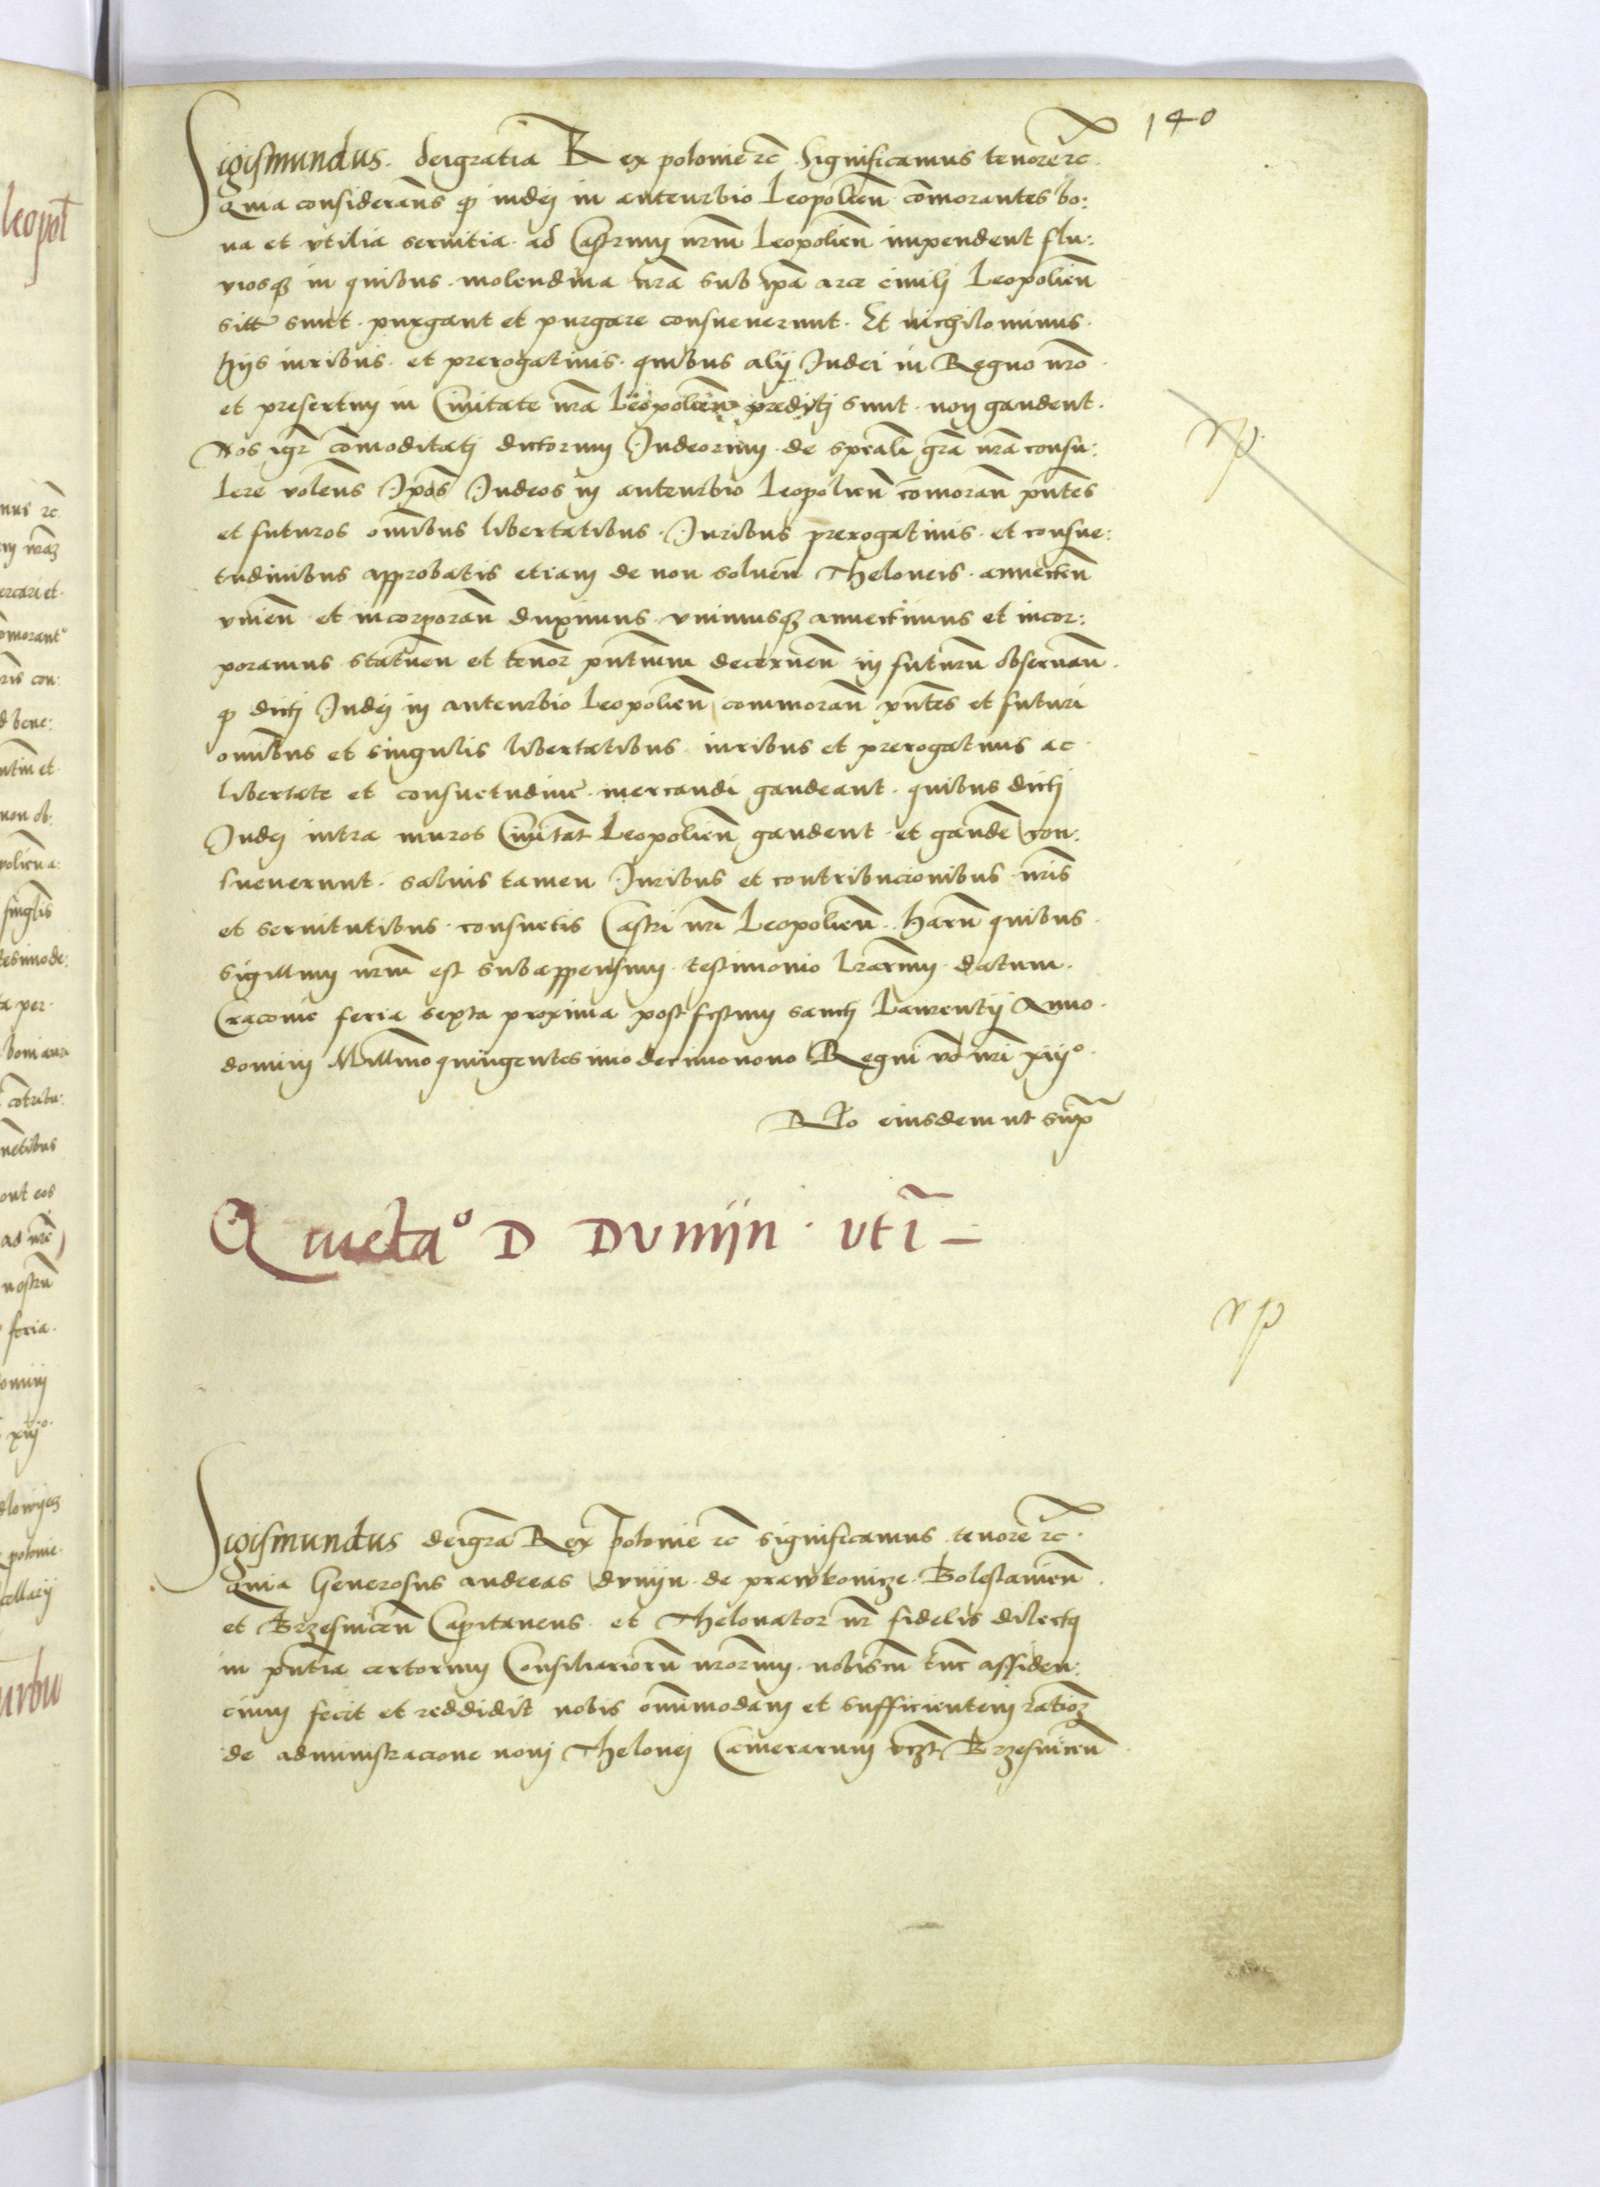 140
Sigismundus. deigratia Rex polonie rc Significamus tenore rc.
Quia considerans qz iudej in anteurbio Leopolien comorantes bo:
na et vtilia seruitia ad Castrum nrm Leopolien impendent flu:
viosqz in quibus molendina nra sub ipa arce Leopolien
site sunt purgant et purgare consueuerunt. Et nichilominus
hijs iuribus et prerogatiuis quibus alij Iudei in Regno nro
et presertim in Ciuitate nra Leopolien predicti sunt non gaudent.
Nos igr comoditatj dictorum Iudeorum de speciali gra nra consu:
lere volens Ipos Iudeos in anteurbio Leopolien comoran pntes
et futuros omibus libertatibus Iuribus prerogatiuis et consue:
tudinibus approbatis etiam de non soluen Theloneis annecten
vnien et incorporan duximus vnimusqz annectimus et incor:
poramus statuen et tenor pntium decernen in futurum obseruan
qz dictj Iudej in anteurbio Leopolien commoran pntes et futuri
omibus et singulis libertatibus iuribus et prerogatiuis ac
libertate et consuetudine mercandi gaudeant quibus dictj
Iudej intra muros Ciuitat Leopolien gaudent et gaudē con:
sueuerunt saluis tamen Iuribus et contribucionibus nris
et seruitutibus consuetis Castri nri Leopolien. Harū quibus
sigillum nrm est subappensum testimonio lrarum datum
Cracouie feria sexta proxima post festum sancti Laurentij Anno
domini Millmo quingentesimo decimonono Regni vo nri xiijo
Rlo eiusdem ut supra
Quieta° D Dunijn vti
rp
Sigismundus deigra Rex polonie rc significamus tenore rc.
Quia Generosus andreas dunijn de prawkowicze Bolestauien
et Brzesnicen Capitaneus et Thelonator nr fidelis dilectus
in pntia certorum Consiliariorū nrorum nobiscum tunc assiden:
cium fecit et reddidit nobis omimodam et sufficientem rationz
de administracione noui Thelonej Camerarum Brzesnicen